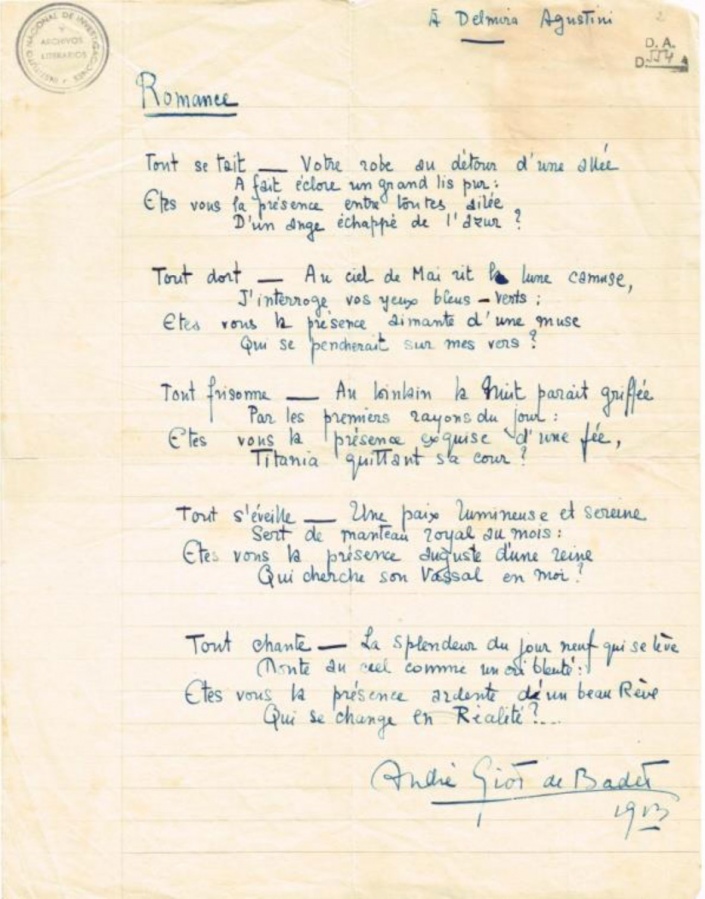 À Delmira Agustini
2
INSTITUTO NACIONAL DE INVESTIGACIONES
Y
ARCHIVOS
LITERARIOS
D. A.
D.
Romance
Tout se tait — Votre robe au détour d'une allée
A fait éclore un grand lis pur :
Etes vous la présence entre toutes ailée
D'un ange échappé de l'azur ?
Tout dort — Au ciel de Mai rit la lune camuse,
J'interroge vos yeux bleus - verts ;
Etes vous la présence aimante d'une muse
Qui se pencherait sur mes vers ?
Tout frisonne — Au lointain la Nuit parait griffée
Par les premiers rayons du jour :
Etes vous la présence exquise d'une fée,
Titania quittant sa cour ?
Tout s'éveille — Une paix lumineuse et sereine
Sert de manteau royal au mois :
Etes vous la présence auguste d'une reine
Qui cherche son Vassal en moi ?
Tout chante — La splendeur du jour neuf qui se lève
Monte au ciel comme un cri bleuté :
Etes vous la présence ardente d'un beau Rêve
Qui se change en Réalité ?...
André Giot de Badet
1913